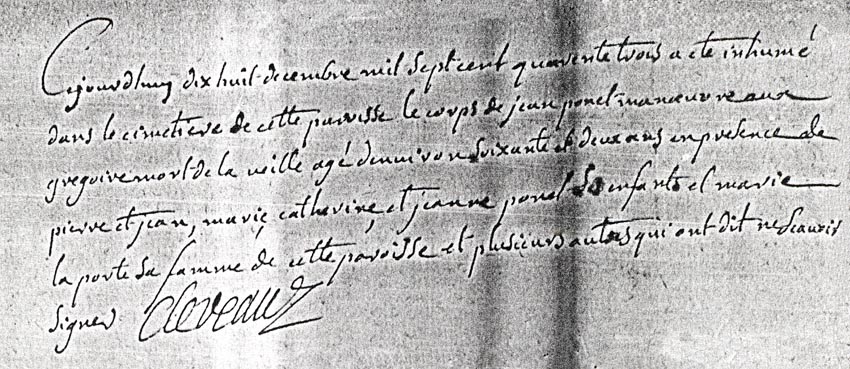 Cejourdhuy dix huit decembre mil sept cent quarente trois a ete inhumé
dans le cimetiere de cette paroisse le corps de jean ponel manœuvre aux
gregoire mort de la veille agé denuiron soixante et deux ans en presence de
pierre et jean, marie, catherine, et jeanne ponel ses enfants et marie
la porte sa famme de cette paroisse et plusieurs autres qui ont dit ne scauoir
signer